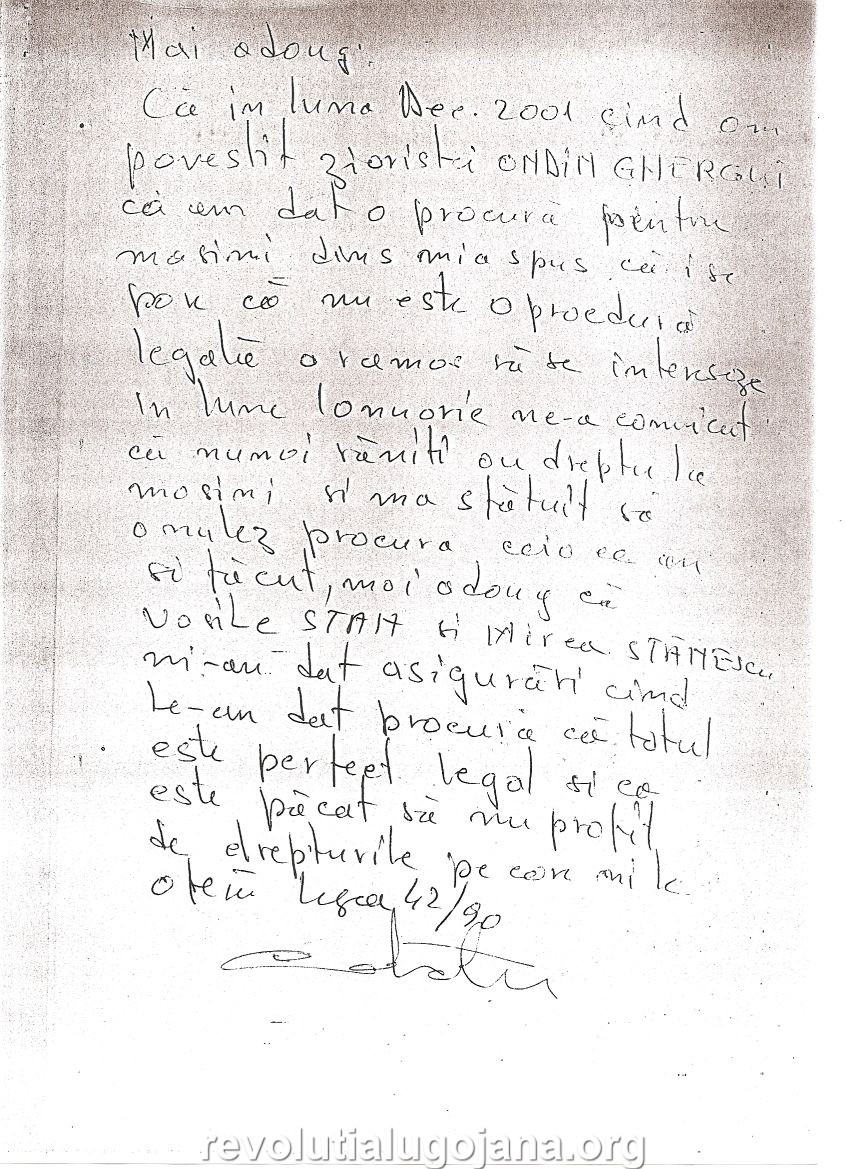 Mai adaug.
Că in luna Dec. 2001 cind am
povestit ziaristei ONDIN GHERGUI
că am dat o procură pentru
masini dins mia spus că i se
pare că nu este o procedură
legală a ramas să se intereseze
In luna Ianuarie ne-a comunicat
că numai răniti au dreptu la
masini si ma sfătuit să
anulez procura ceia ce am
si făcut, mai adaug că
Vasile STAIA si Mircea STĂNESCU
mi-au dat asigurări cind
le-am dat procura că totul
este perfect legal si ca
este păcat să nu profit
de drepturile pe care mi le
oferă Legea 42/90
revolutialugojana.org